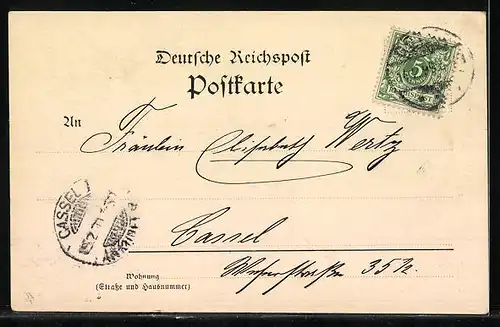 Deutsche Reichspost
Postkarte
An
Fräulein Elisabeth Wertz
Cassel
35½.
Wohnung
(Straße und Hausnummer)
CASSEL
5